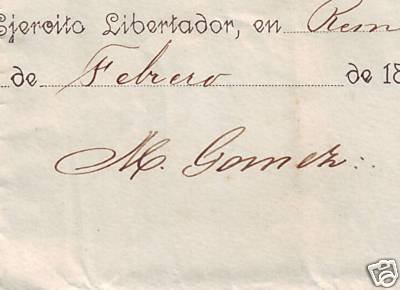 Ejercito Libertador, en Rem
de Febrero de 18
M. Gomez.
ebY